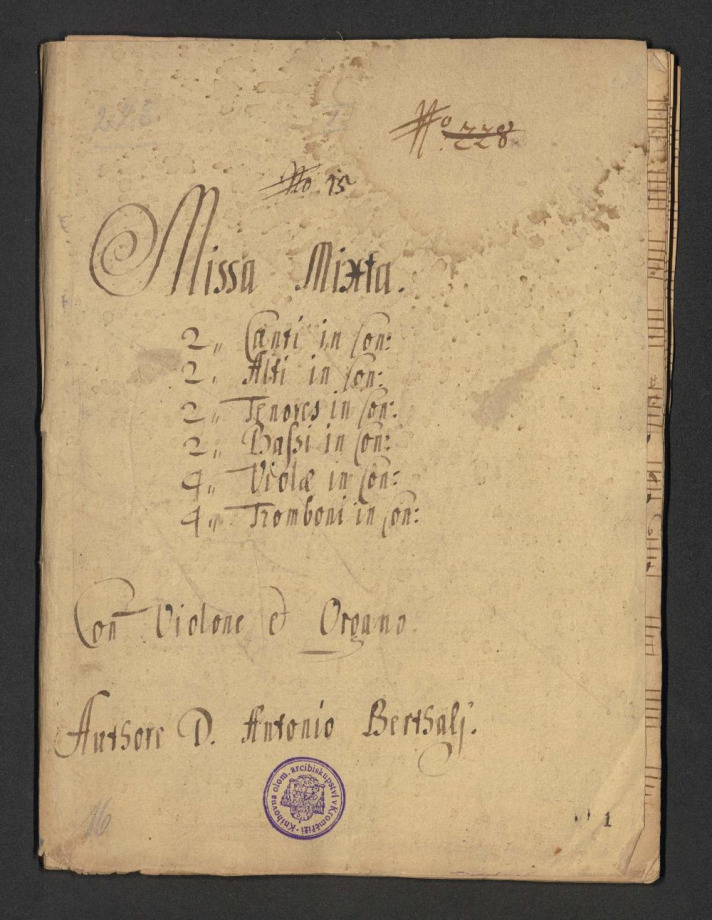 No 228
No 15
Missa Mixta.
2„ Canti in Con:
2„ Alti in Con:
2„ Tenores in Con:
2„ Baſsi in Con:
4„ Violæ in Con:
4„ Tromboni in Con:
Con Violone et Organo
Authore D. Antonio Berthalj.
Knihovna olom. arcibiskupství v Kroměříži
16
1